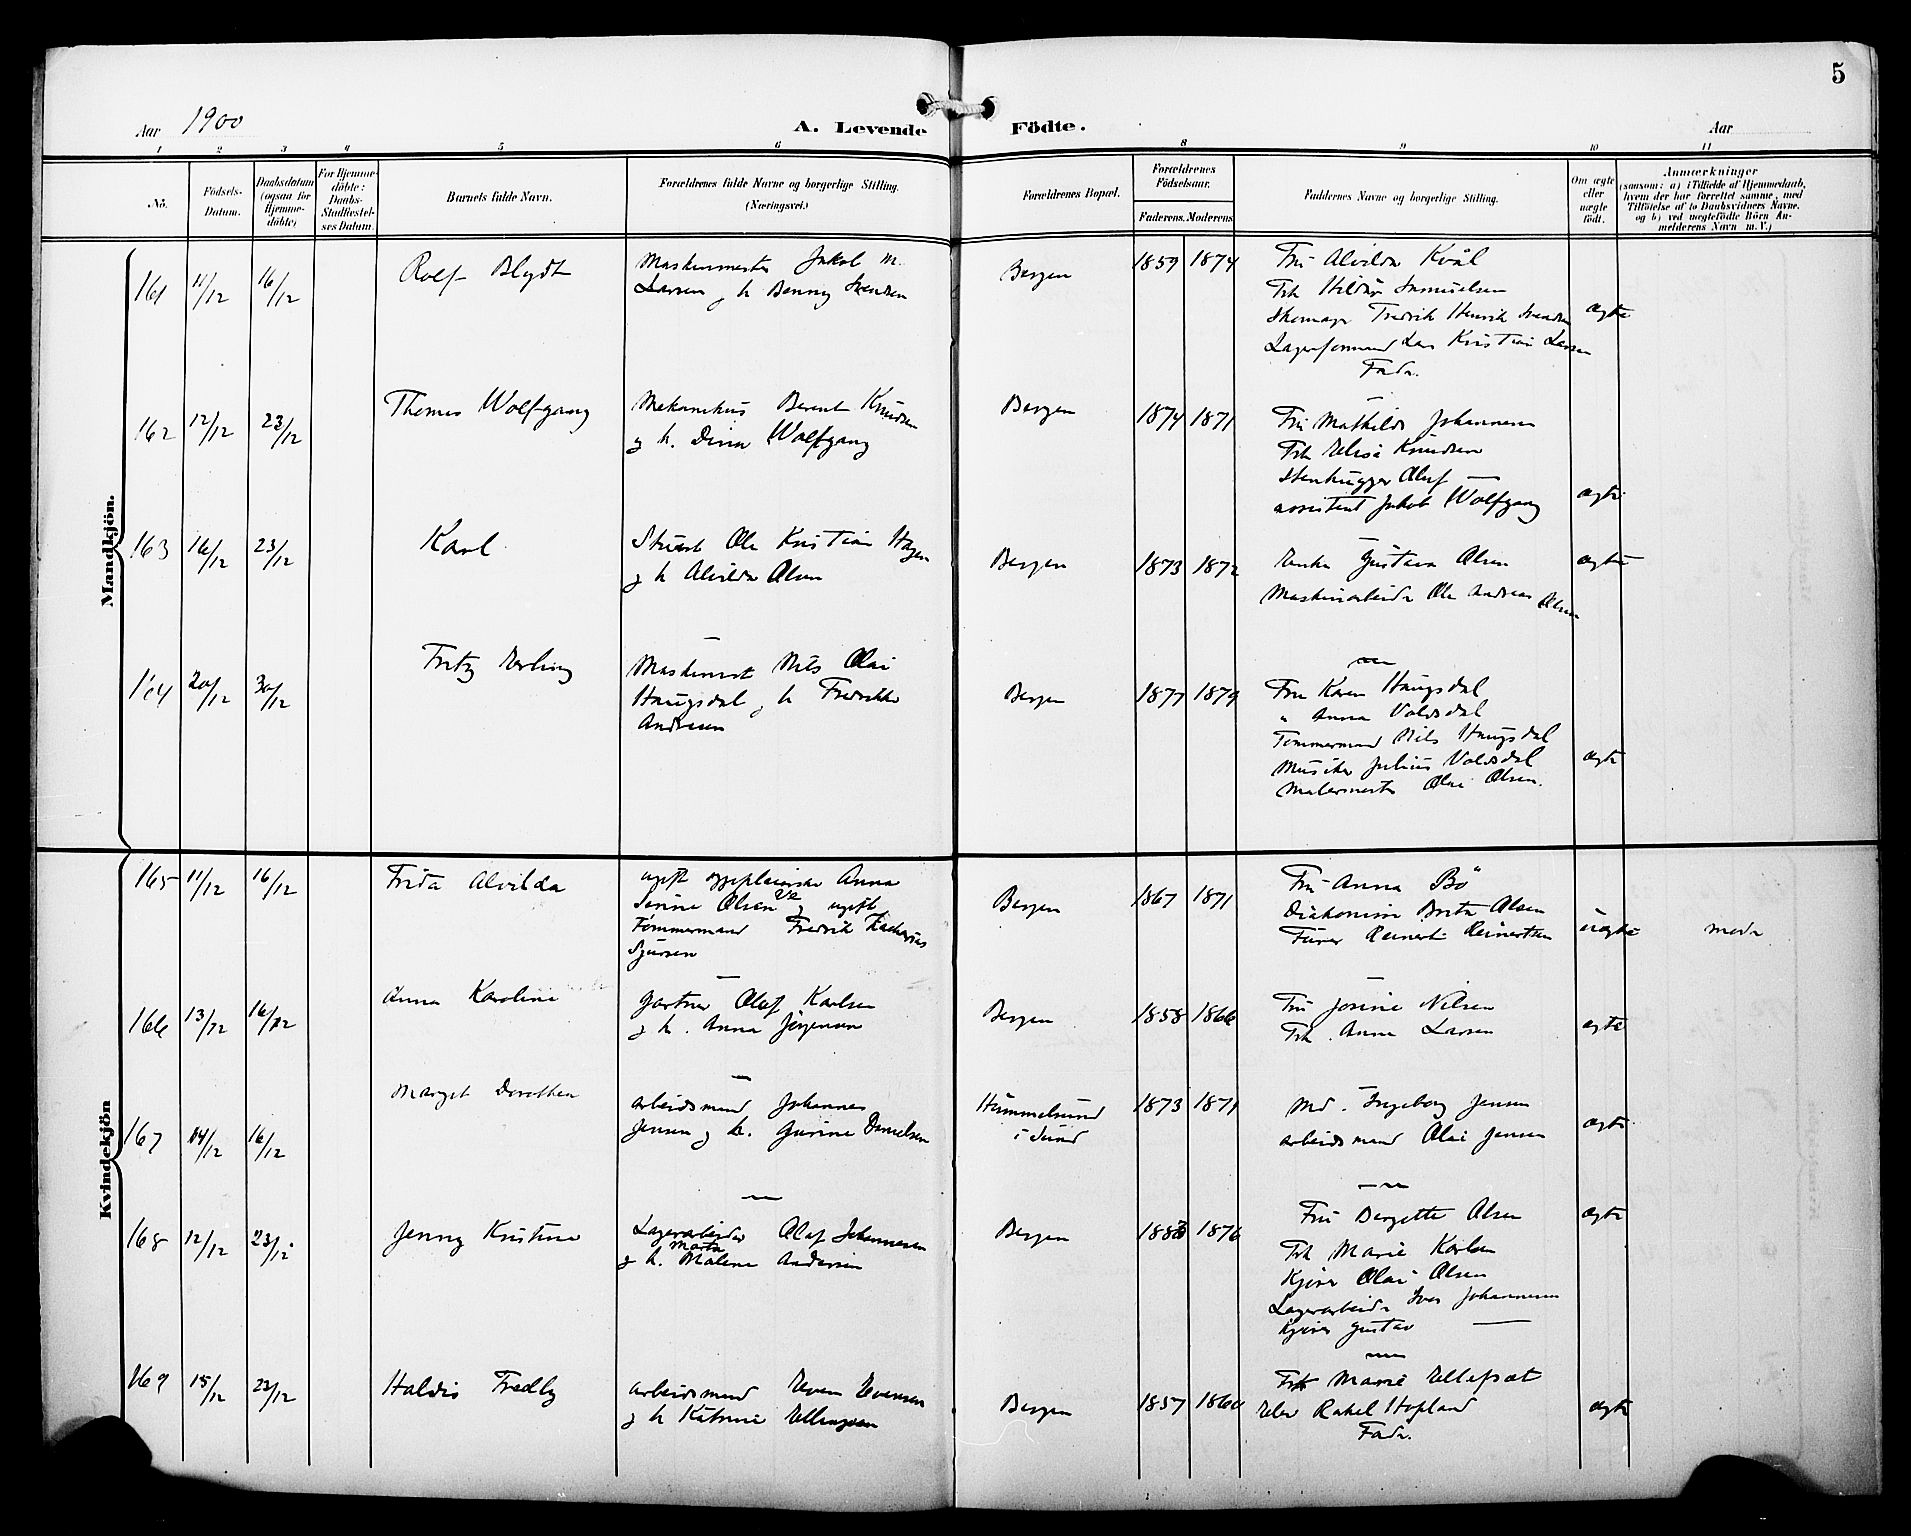 5
Aar 1900
A. Levende Födte.
Aar
1 2 3 4 5 6 8 9 10 11
No.
Födsels-Datum.
Daabsdatum (ogsaa för Hjemme-döbte)
For Hjemme-döbte: Daabs-Stadfæstel-ses Datum.
Barnets fulde Navn.
Forældrenes fulde Navne og borgerlige Stilling. (Næringsvei.)
Forældrenes Bopæl.
Forældrenes Födselsaar.
Faderens. Moderens.
Faddernes Navne og borgerlige Stilling.
Om ægte eller uægte födt.
Anmærkninger
(saasom: a) i Tilfælde af Hjemmedaab,
hvem der har forrettet samme, med
Tilföielse af to Daabsvidners Navne.
og b) ved uægtefödte Börn An-
melderens Navn m. V.)
Mandkjön.
161 11/12 16/12 Rolf Blydt
Maskinmester Jakob M.
Larsen og h Benny Svendsen
Bergen 1859 1874
Fru Alvilda Kvål
Frk Hildur Samuelsen
Skomager Fredrik Henrik Svendsen
Lagerformand Lars Kristian Larsen
Fader.
ægte
162 12/12 23/12 Thomas Wolfgang
Mekanikus Berent Knudsen
og h. Dina Wolfgang
Bergen 1874 1871
Fru Mathilde Johannesen
Frk Elise Knudsen
Stenhugger Oluf —
assistent Jakob Wolfgang
ægte
163 16/12 23/12 Karl
Stuert Ole Kristian Hagen
og h Alvilda Olsen
Bergen 1873 1872
Enke Gustava Olsen
Maskinarbeider Ole Andreas Olsen
ægte
164 20/12 30/12 Fritz Erling
Maskinist Nils Olai
Haugsdal og h Fredrikke
Andresen
Bergen 1877 1879
Fru Karen Haugsdal
" Anna Valdsdal
Tømmermand Nils Haugsdal
Musiker Julius Valdsdal
Malermester Olai Olsen.
ægte
Kvindekjön
165 11/12 16/12 Frida Alvilda
ugift Anna
Serine Olsen og ugift
Tømmermand Fredrik Zacharias
Sjursen
Bergen 1867 1871
Fru Anna Bö
Diakonisse Brita Olsen
Furer Reinert Reinertsen
uægte moder
166 13/12 16/12 Anna Karoline
Gartner Olaf Karlsen
og h. Anna Jørgensen
Bergen 1858 1866
Fru Josine Nilsen
Frk. Anna Larsen
ægte
167 04/12 16/12 Margit Dorothea
arbeidsmand Johannes
Jensen og h. Gurine Danielsen
Hummelsund
i Sund
1873 1871
Md. Ingeborg Jensen
arbeidsmand Olai Jensen
ægte
168 12/12 23/12 Jenny Kristine
Lagerarbeider Olaf Johannesen
og h. Marta Malene Andersen
Bergen 1876
Fru Bergette Olsen
Frk Marie Karlsen
Kjører Olai Olsen
Lagerarbeider Iver Johannesen
Kjører Gustav —
ægte
169 15/12 23/12 Haldis Fredly
arbeidsmand Even Evensen
og h Katrine Ellingsen
Bergen 1857 1860
Frk Marie Ellefsæt
Elev Rakel Hopland
Fader.
ægte